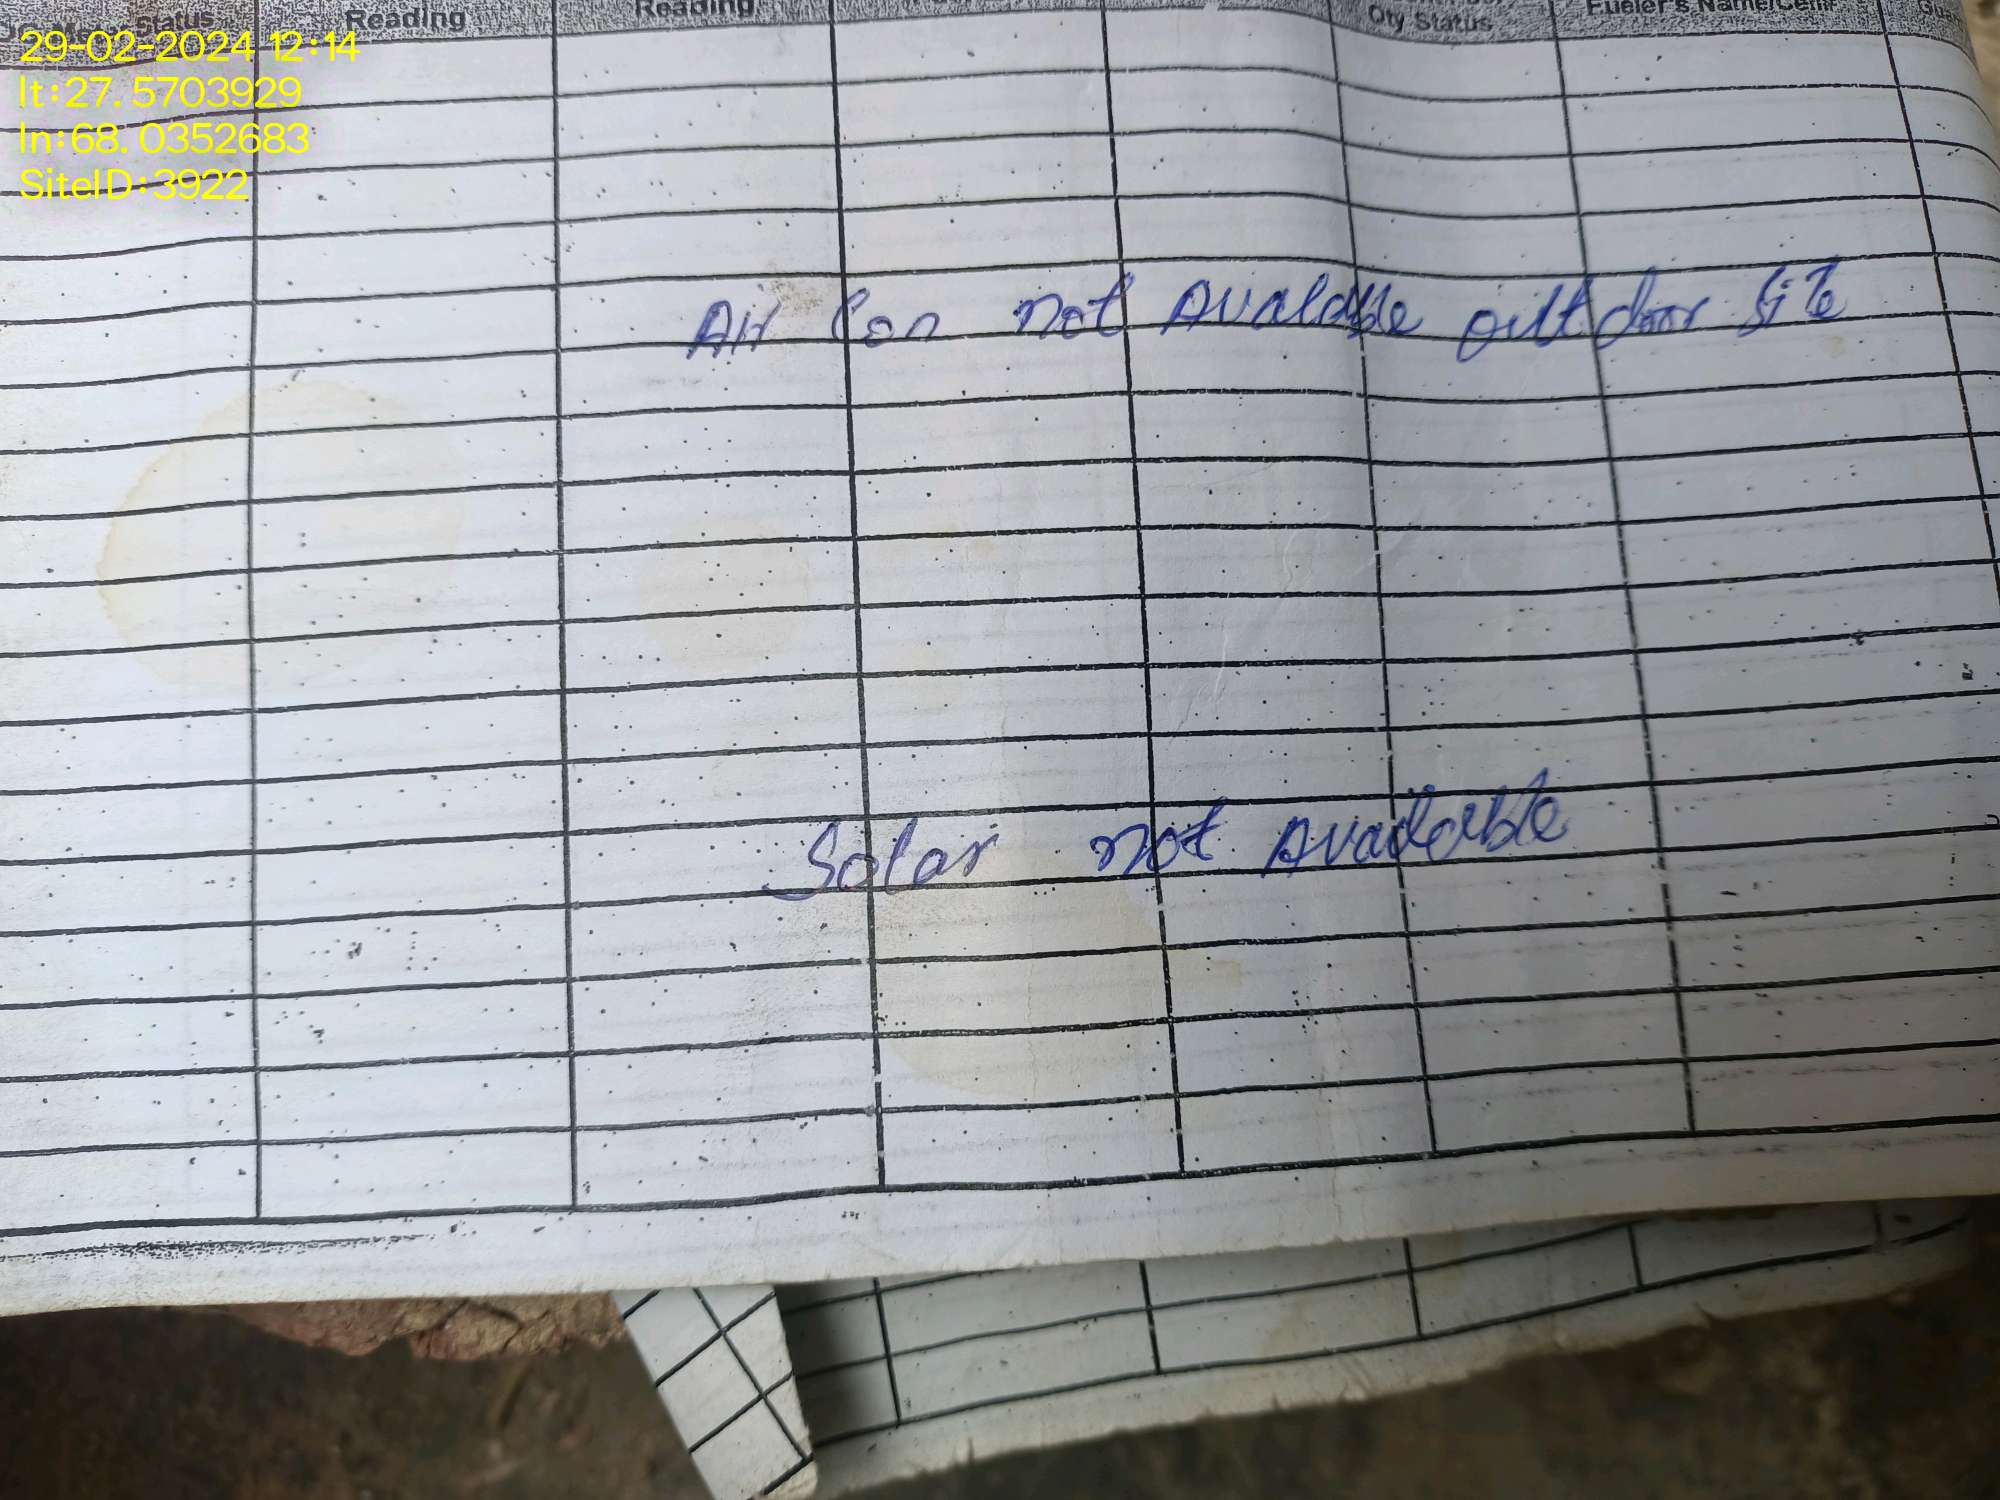 Meter Status Reading Reading Qty Status Fueler's Name/Cell#
29-02-2024 12:14
lt:27.5703929
ln:68.0352683
SiteID:3922
Air Con not Available outdoor Site
Solar not Available